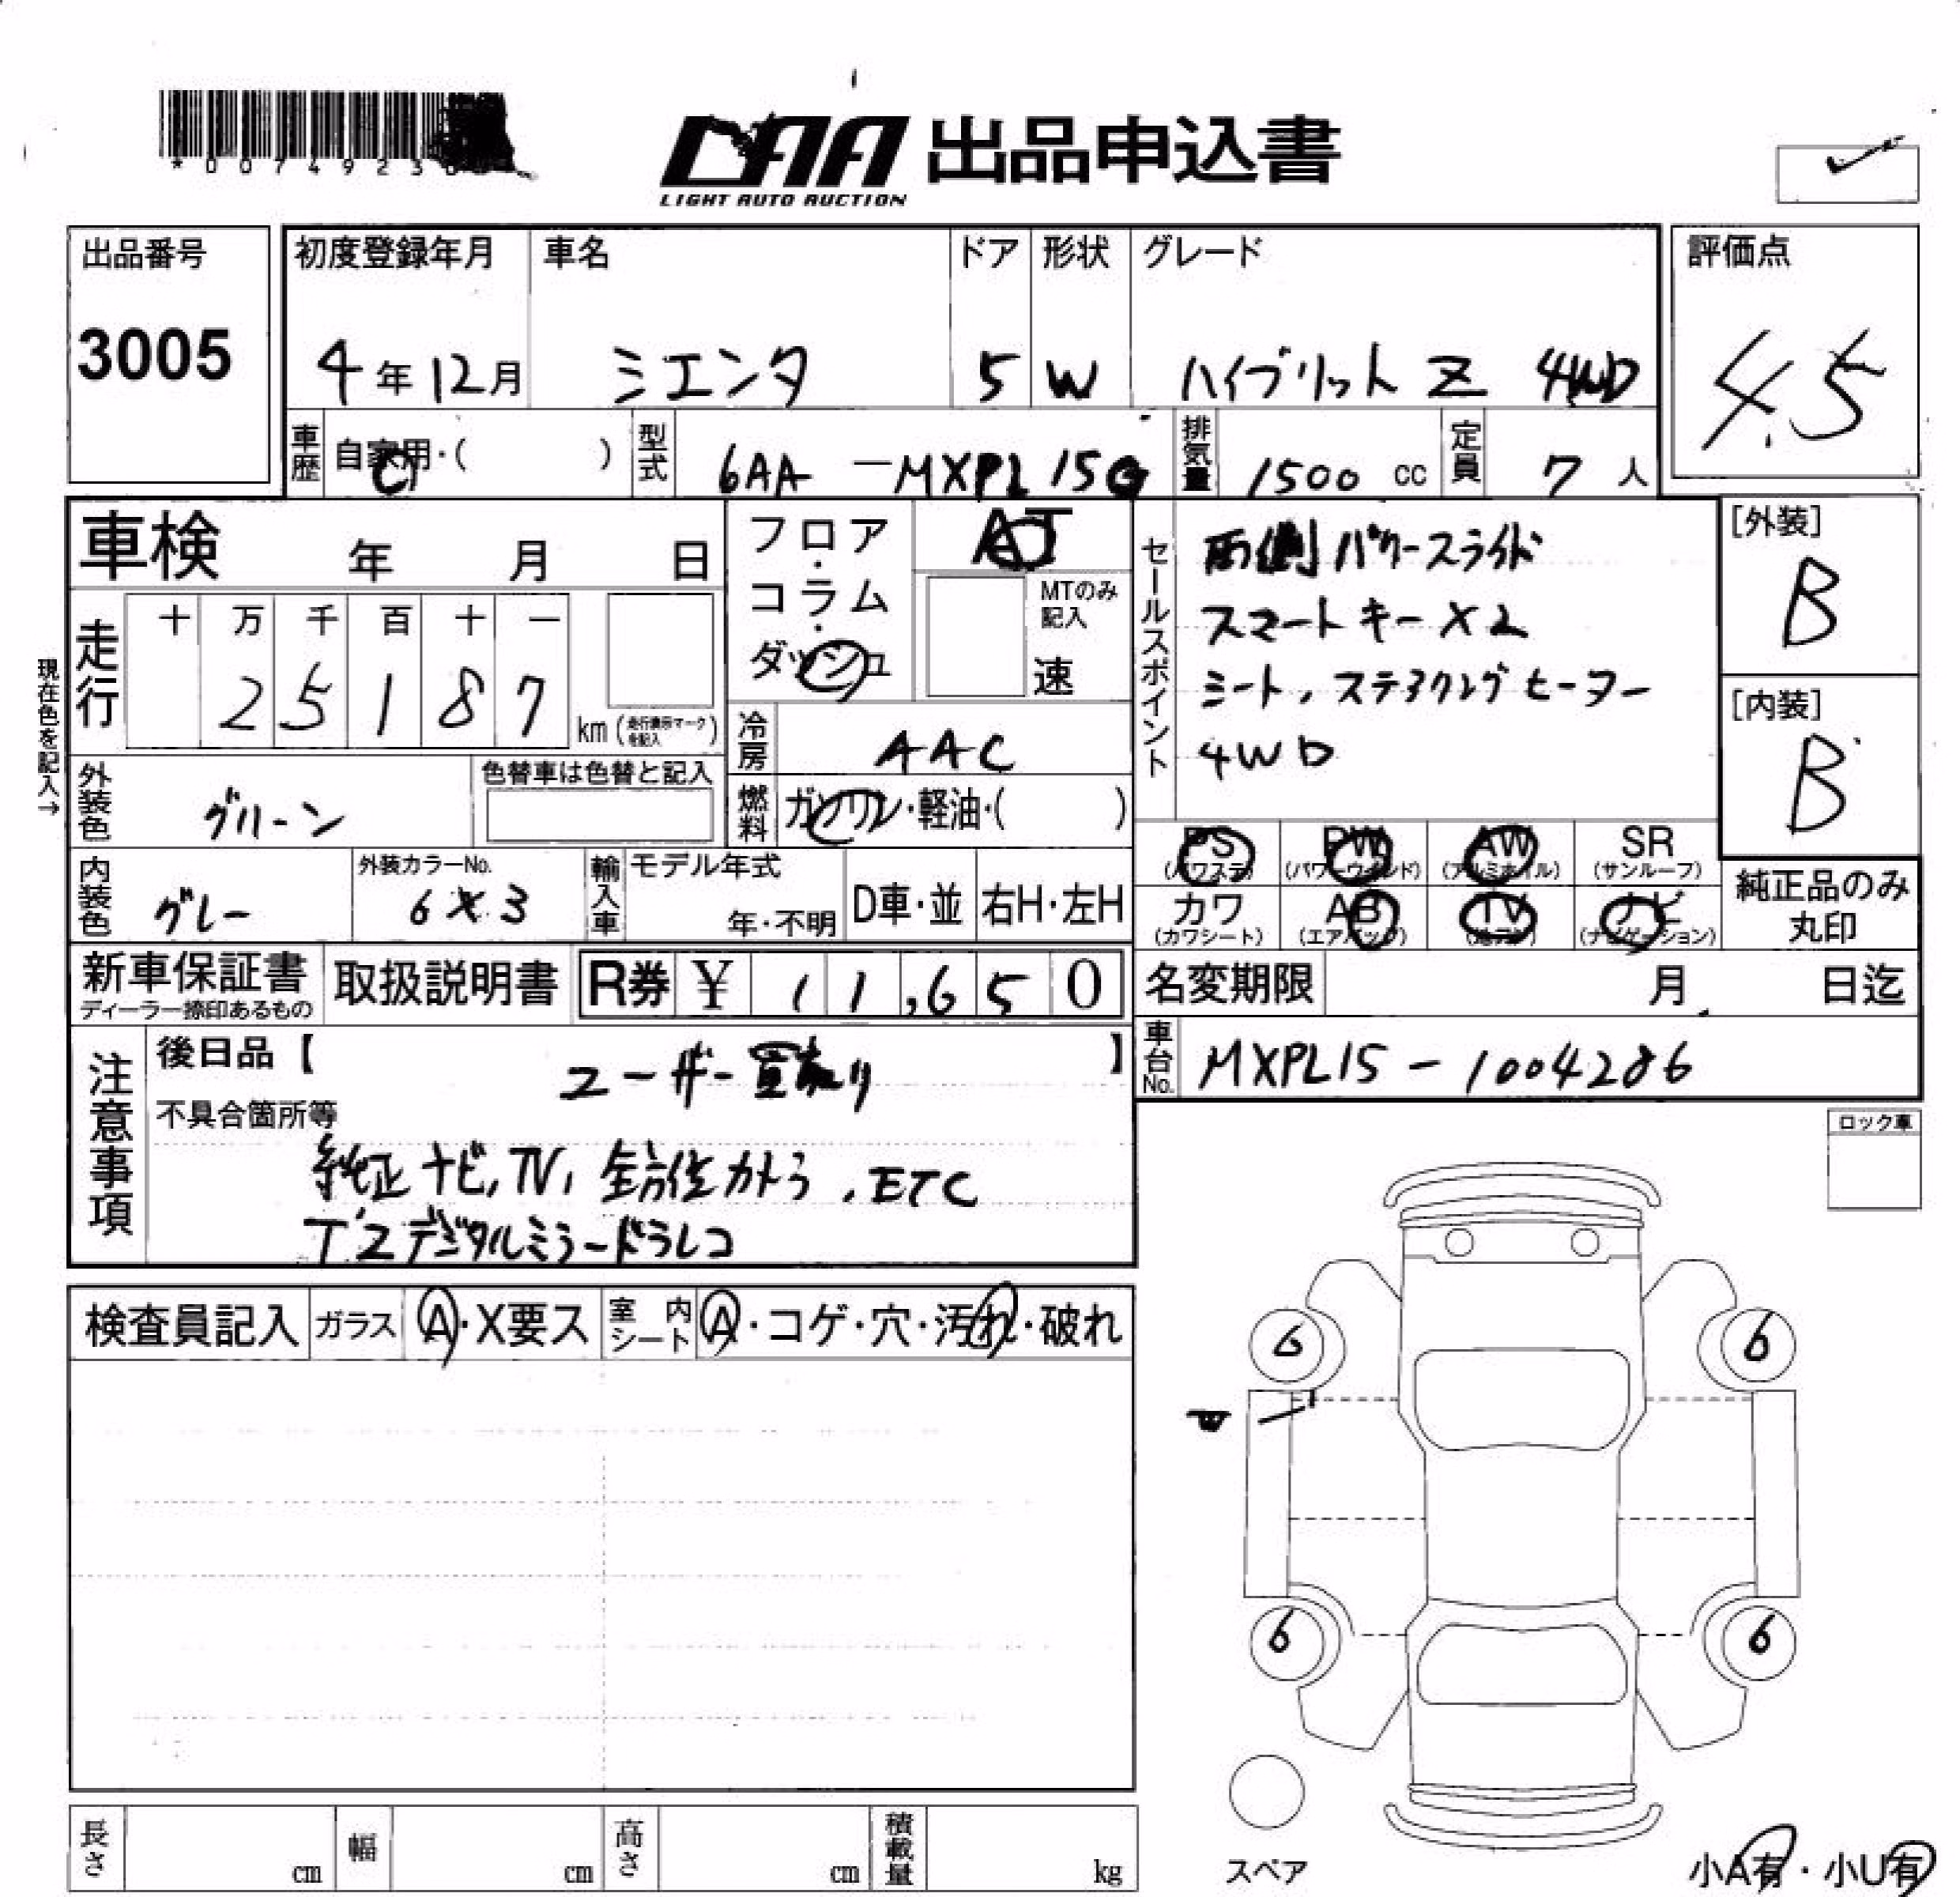 *0074923
LAA 出品申込書
LIGHT AUTO AUCTION
出品番号
3005
初度登録年月
4年12月
車名
シエンタ
ドア
5
形状
W
グレード
ハイブリット Z 4WD
評価点
4.5
車歴
自家用・( )
型式
6AA-MXPL15G
排気量
1500 cc
定員
7 人
車検 年 月 日
フロア・コラム・ダッシュ
AT
MTのみ記入
速
セールスポイント
両側パワースライド
スマートキー×2
シート、ステアリングヒーター
4WD
[外装]
B
[内装]
B
現在色を記入→
走行
十 万 千 百 十 一
2 5 1 8 7
km (走行表示マークを記入)
冷房
AAC
外装色
グリーン
色替車は色替と記入
燃料
ガソリン・軽油・( )
内装色
グレー
外装カラーNo.
6X3
輸入車
モデル年式
年・不明
D車・並
右H・左H
PS PW AW SR
(パワステ) (パワーウインド) (アルミホイル) (サンルーフ)
カワ AB TV ナビ
(カワシート) (エアバック) (ナビゲーション)
純正品のみ丸印
新車保証書
ディーラー捺印あるもの
取扱説明書
R券 ¥ 11,650
名変期限 月 日迄
車台No.
MXPL15-1004286
注意事項
後日品【 】
ユーザー買取り
不具合箇所等
純正ナビ, TV, 全方位カメラ, ETC
デジタルミラードラレコ
ロック車
検査員記入
ガラス
A・X要ス
室内シート
A・コゲ・穴・汚れ・破れ
6 6
6 6
スペア
長さ cm
幅 cm
高さ cm
積載量 kg
小A有・小U有